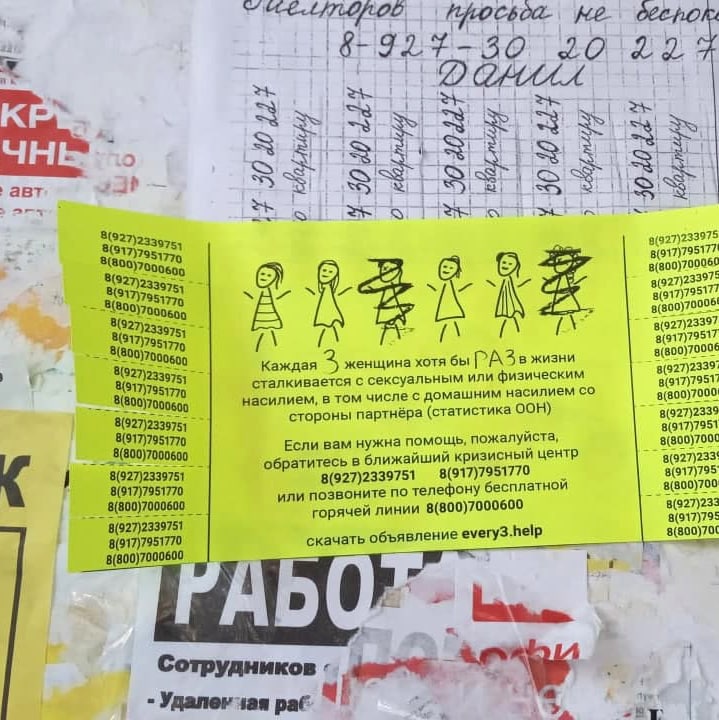 просьба не
8-927-30 20 227
Данил
7 30 20 227
квартиру
7 30 20 227
квартиру
7 30 20 227
квартиру
7 30 20 227
квартиру
30 20 227
квартиру
КР
ЧНЫ
авт
8(927)2339751
8(917)7951770
8(800)7000600
8(927)2339751
8(917)7951770
8(800)7000600
8(927)2339751
8(917)7951770
8(800)7000600
8(927)2339751
8(917)7951770
8(800)7000600
8(927)2339751
8(917)7951770
8(800)7000600
8(927)2339751
8(917)7951770
8(800)7000600
8(927)2339751
8(917)7951770
8(800)7000600
Каждая 3 женщина хотя бы РАЗ в жизни
сталкивается с сексуальным или физическим
насилием, в том числе с домашним насилием со
стороны партнёра (статистика ООН)
Если вам нужна помощь, пожалуйста,
обратитесь в ближайший кризисный центр
8(927)2339751 8(917)7951770
или позвоните по телефону бесплатной
горячей линии 8(800)7000600
скачать объявление every3.help
8(927)233975
8(917)79517
8(800)70006
8(927)23397
8(917)79517
8(800)70006
8(927)2339
8(917)7951
8(800)7000
8(927)2339
8(917)7951
8(800)7000
8(927)2339
8(917)795
8(800)700
8(927)233
8(917)795
8(800)700
8(927)23
8(917)79
8(800)70
К
РАБОТ
Сотрудников
- Удаленная раб